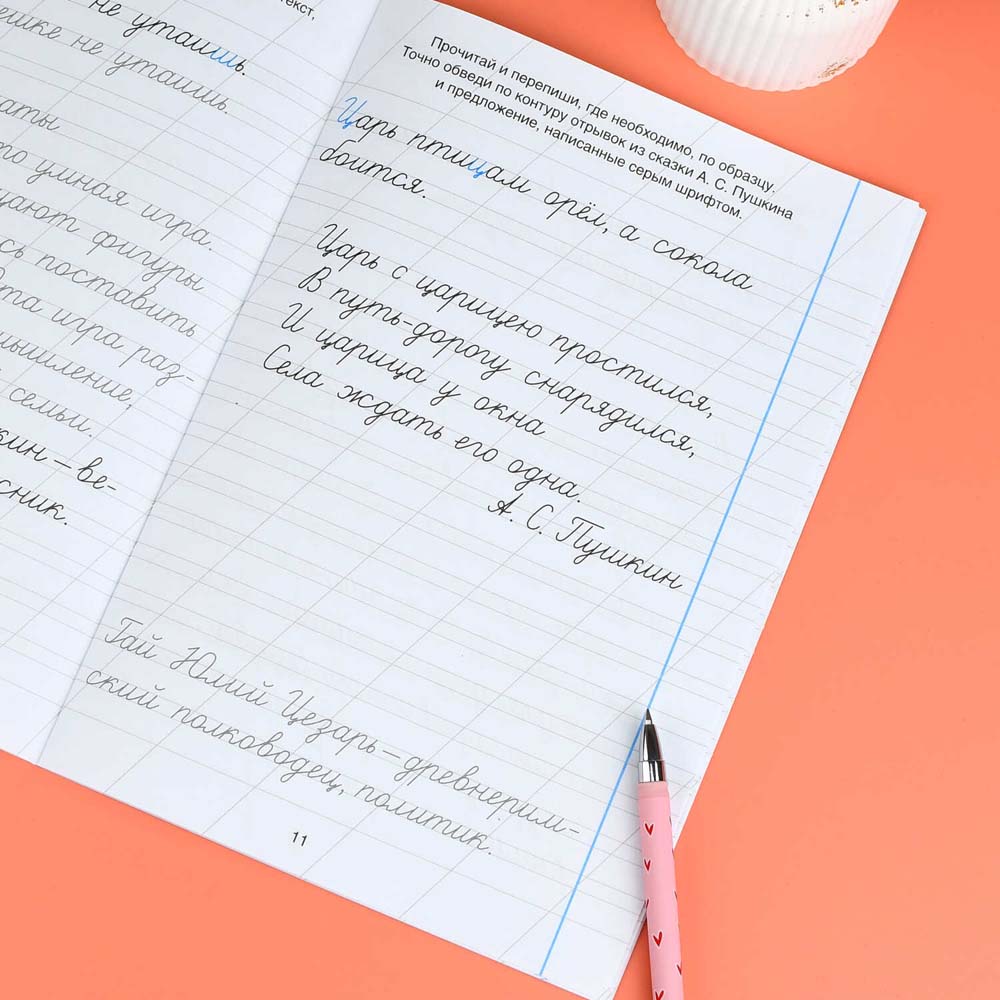 текст,
не утаишь.
не утаишь.
умная игра.
фигуры
поставить
игра раз-
семьи.
– ве-
Прочитай и перепиши, где необходимо, по образцу.
Точно обведи по контуру отрывок из сказки А. С. Пушкина
и предложение, написанные серым шрифтом.
Царь птицам орёл, а сокола
боится.
Царь с царицею простился,
В путь-дорогу снарядился,
И царица у окна
Села ждать его одна.
А. С. Пушкин
Гай Юлий Цезарь – древнерим-
ский полководец, политик.
11